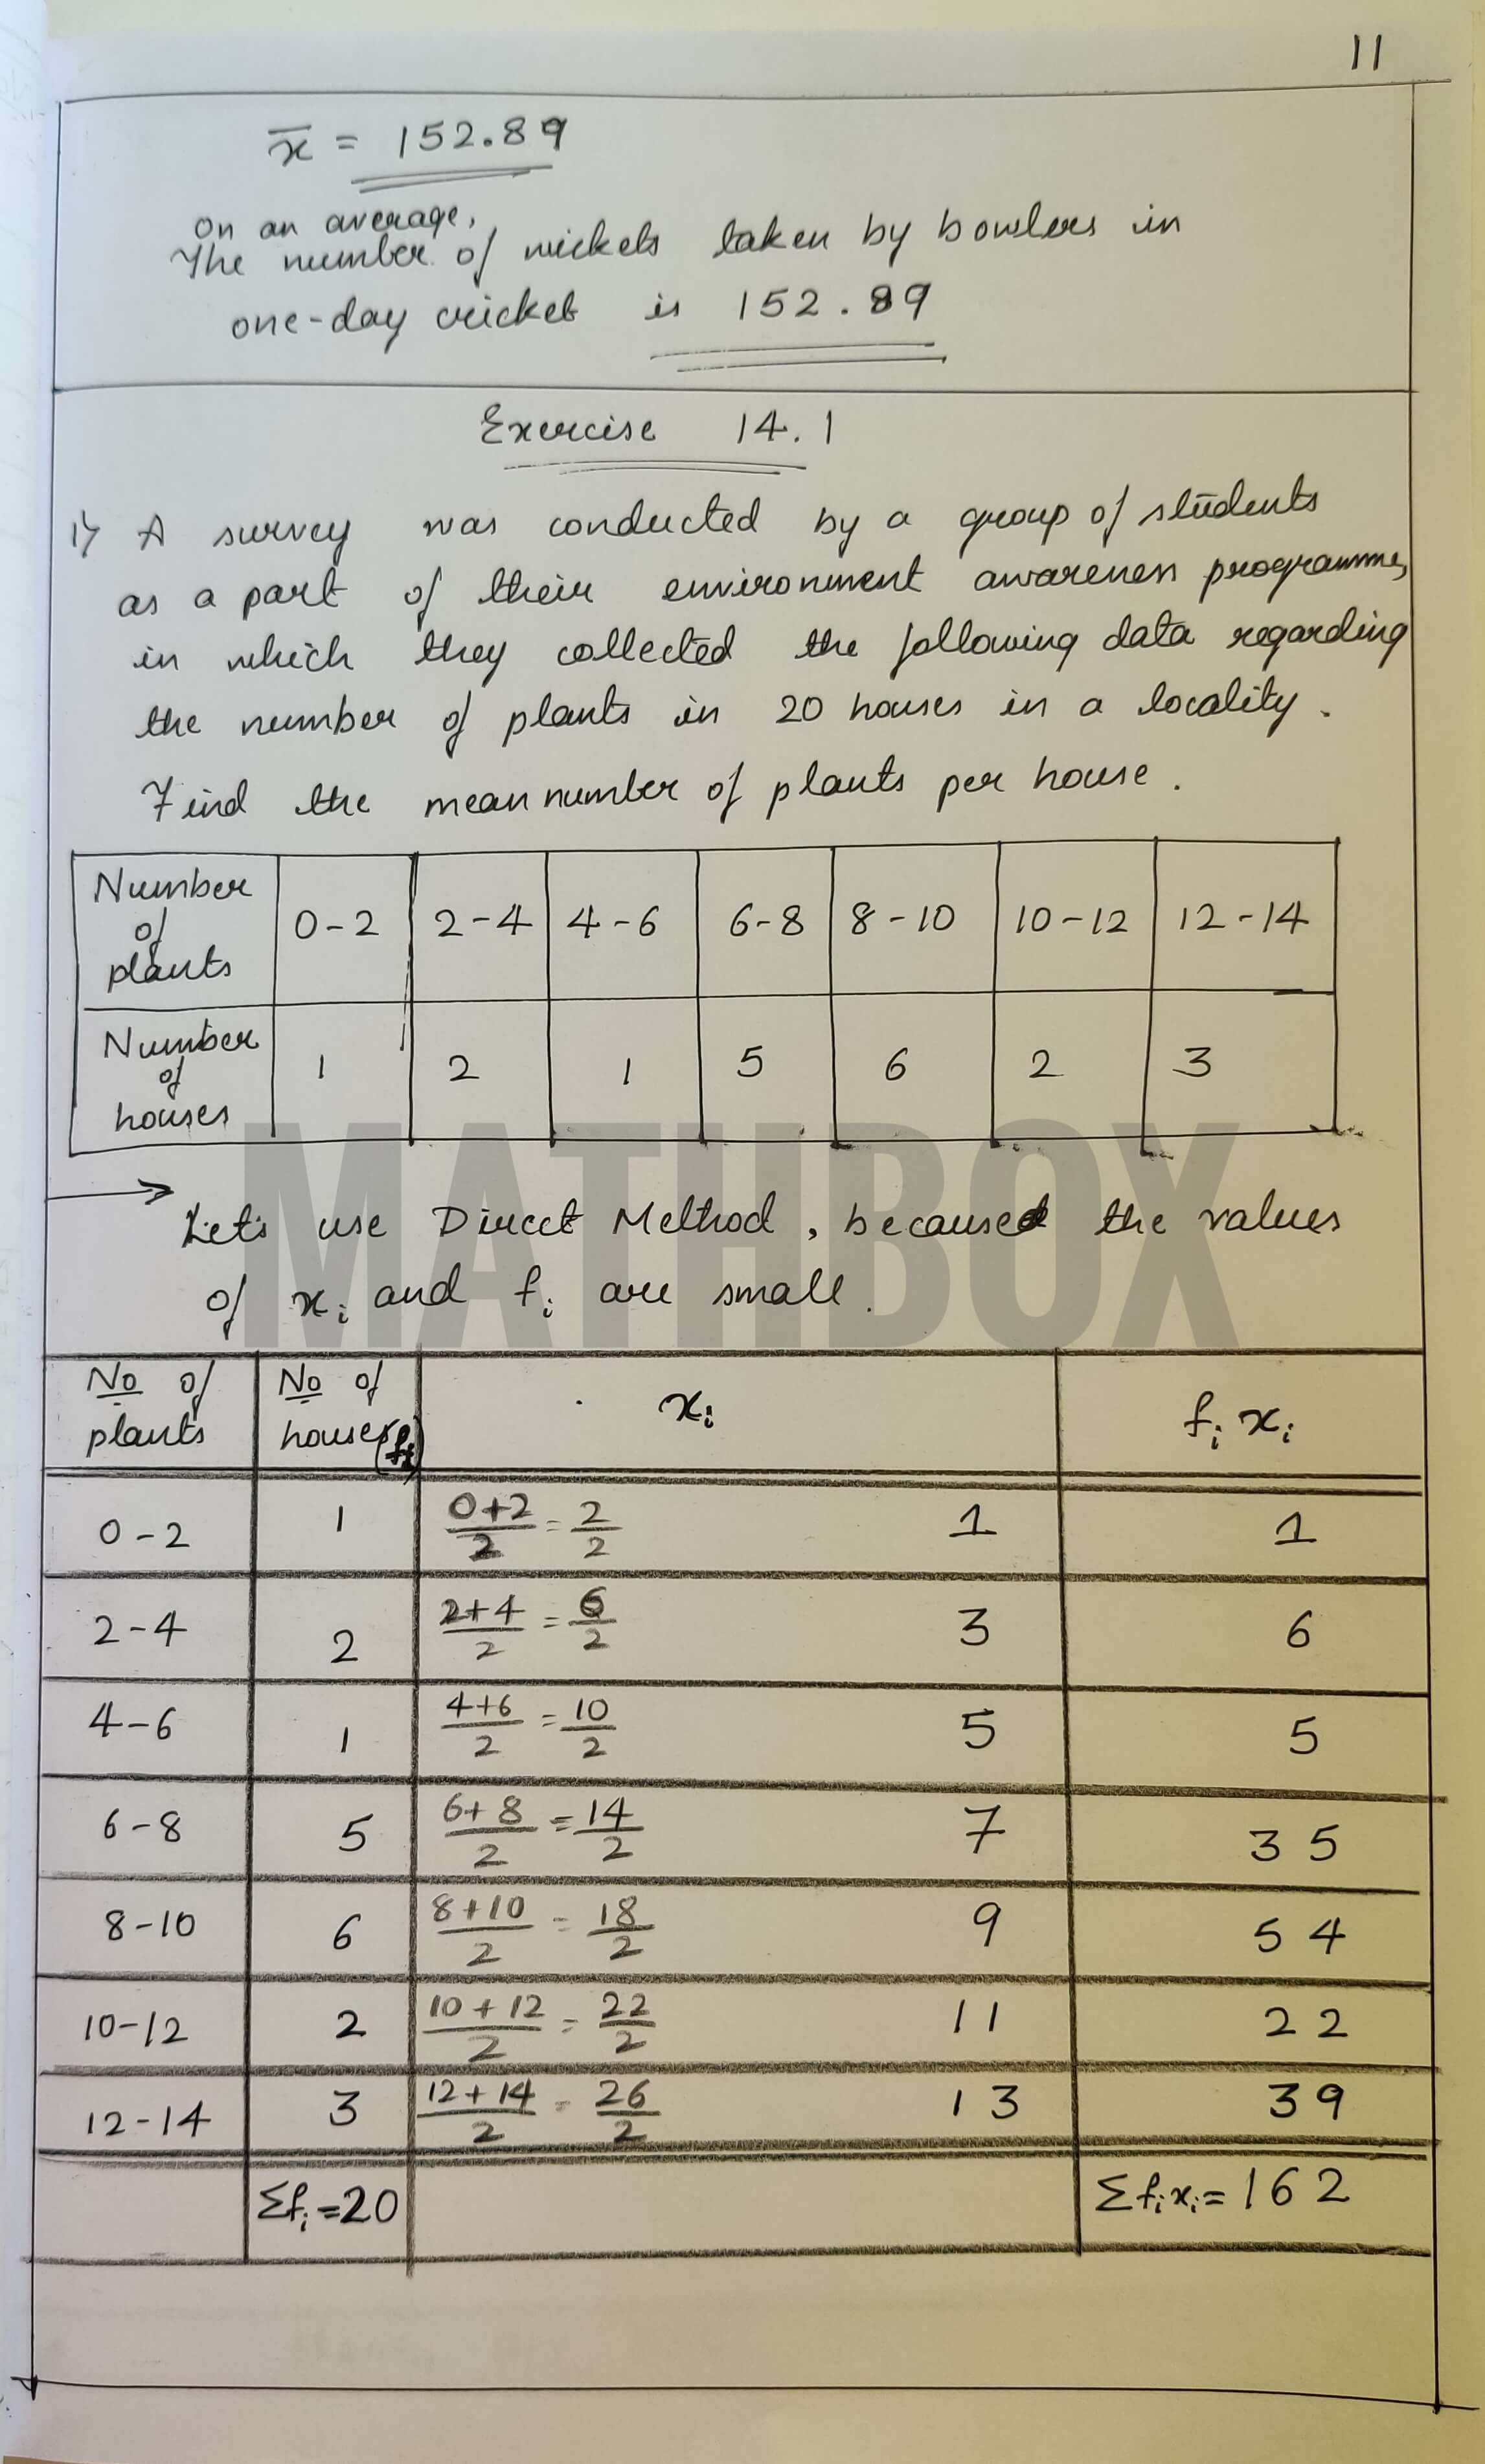 11
x̄ = 152.89
On an average,
The number of wickets taken by bowlers in
one-day cricket is 152.89
Exercise 14.1
1) A survey was conducted by a group of students
as a part of their environment awareness programme,
in which they collected the following data regarding
the number of plants in 20 houses in a locality.
Find the mean number of plants per house.
Number of plants 0-2 2-4 4-6 6-8 8-10 10-12 12-14
Number of houses 1 2 1 5 6 2 3
MATHBOX
→ Let's use Direct Method, because the values
of xᵢ and fᵢ are small.
No of plants No of houses (fᵢ) xᵢ fᵢ xᵢ
0-2 1 (0+2)/2 = 2/2 1 1
2-4 2 (2+4)/2 = 6/2 3 6
4-6 1 (4+6)/2 = 10/2 5 5
6-8 5 (6+8)/2 = 14/2 7 35
8-10 6 (8+10)/2 = 18/2 9 54
10-12 2 (10+12)/2 = 22/2 11 22
12-14 3 (12+14)/2 = 26/2 13 39
Σfᵢ = 20 Σfᵢxᵢ = 162